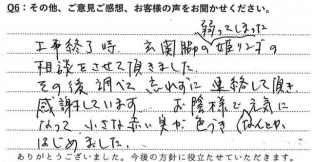 Q6：その他、ご意見ご感想、お客様の声をお聞かせください。
弱ってしまった
工事終了時、玄関脇の姫リンゴの
相談をさせて頂きました。
その後調べて忘れずに連絡して頂き
感謝しています。 お陰様で元気に
なって 小さな赤い実が色づき（なんとか
はじめました。
ありがとうございました。今後の方針に役立たせていただきます。